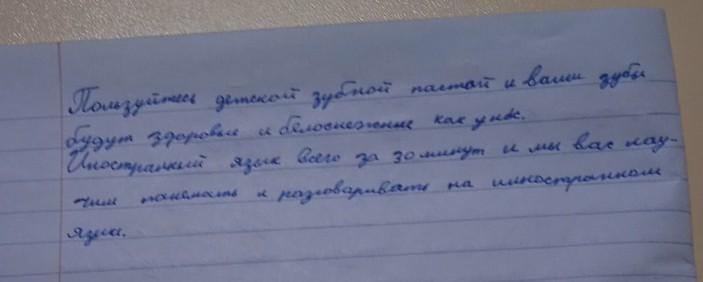 Пользуйтесь детской зубной пастой и ваши зубы
будут здоровые и белоснежные как у них.
Иностранкий язык всего за 30 минут и мы вас нау-
чим понемать и разговаривать на инностранном
языке.